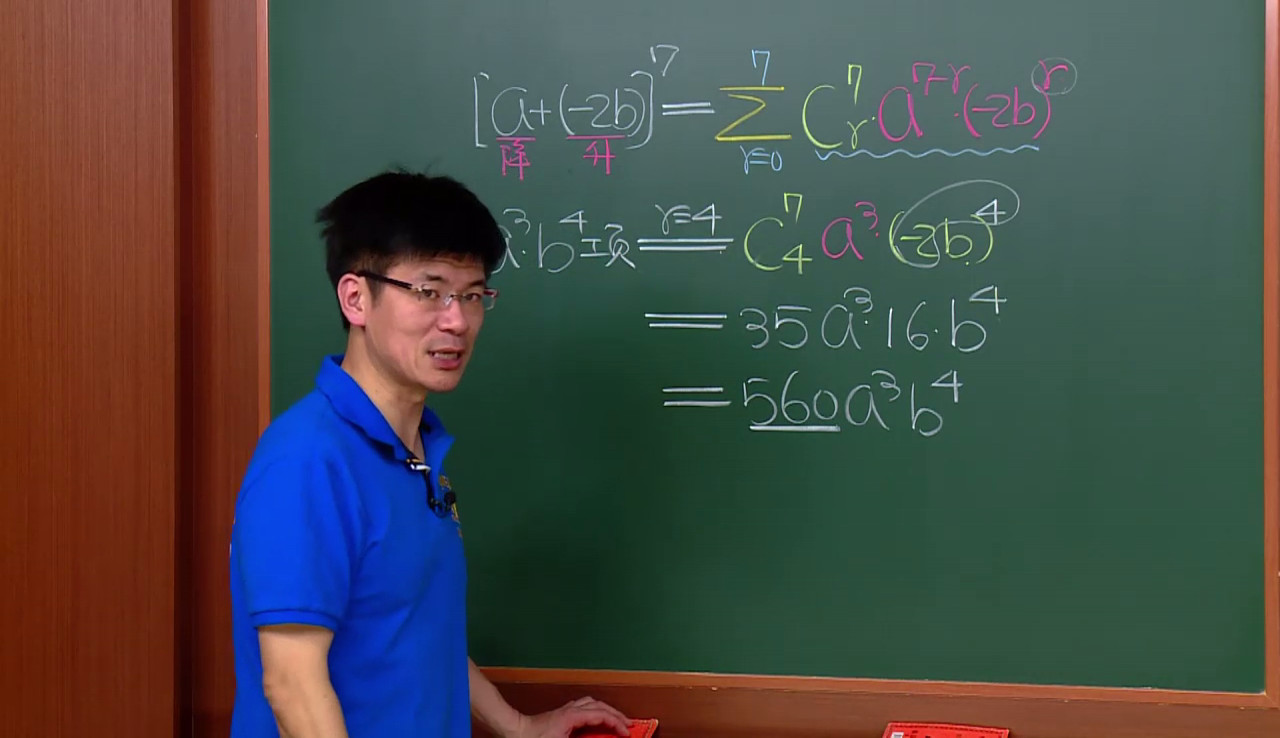 [a+(-2b)]⁷ = Σ⁷ᵣ₌₀ C⁷ᵣ·a⁷⁻ʳ·(-2b)ʳ
降 升
a³·b⁴项 r=4 = C⁷₄ a³·(-2b)⁴
= 35a³·16·b⁴
= 560a³b⁴